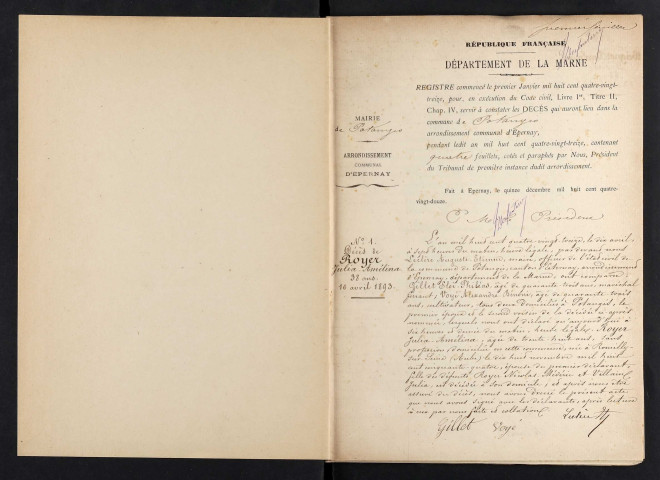 premier feuillet
RÉPUBLIQUE FRANÇAISE
DÉPARTEMENT DE LA MARNE
REGISTRE commencé le premier Janvier mil huit cent quatre-vingt-
treize, pour, en exécution du Code civil, Livre Ier, Titre II,
Chap. IV, servir à constater les DÉCÈS qui auront lieu dans la
commune de Potangis
arrondissement communal d'Épernay,
pendant ledit an mil huit cent quatre-vingt-treize, contenant
quatre feuillets, cotés et paraphés par Nous, Président
du Tribunal de première instance dudit arrondissement.
Fait à Epernay, le quinze décembre mil huit cent quatre-
vingt-douze.
Président
MAIRIE
de Potangis
ARRONDISSEMENT
COMMUNAL
D'ÉPERNAY
No 1.
Décès de
Royer
Julia Amélina
38 ans
10 avril 1893.
L'an mil huit cent quatre-vingt-treize, le dix avril,
à sept heures du matin, heure légale, par devant nous
Auguste Etienne, maire, officier de l'état civil de
la commune de Potangis, canton d'Esternay, arrondissement
d'Epernay, département de la Marne, ont comparu
Gillet Eloi, âgé de quarante trois ans, maréchal
ferrant, Voyé Alexandre, âgé de quarante trois
ans, cultivateur, tous deux domiciliés à Potangis, le
premier époux et le second voisin de la décédée ci-après
nommée, lesquels nous ont déclaré qu'aujourd'hui à
six heures et demie du matin, heure légale, Royer
Julia Amélina, âgée de trente huit ans, sans
profession, domiciliée en cette commune, née à Romilly-
sur-Seine (Aube) le dix huit novembre mil huit
cent cinquante quatre, épouse du premier déclarant,
fille de défunts Royer Nicolas et
Julia, est décédée à son domicile; et après nous être
assuré du décès, nous avons dressé le présent acte
que nous avons signé avec les déclarants, après lecture
à eux par nous faite et collation.
Gillet Voyé